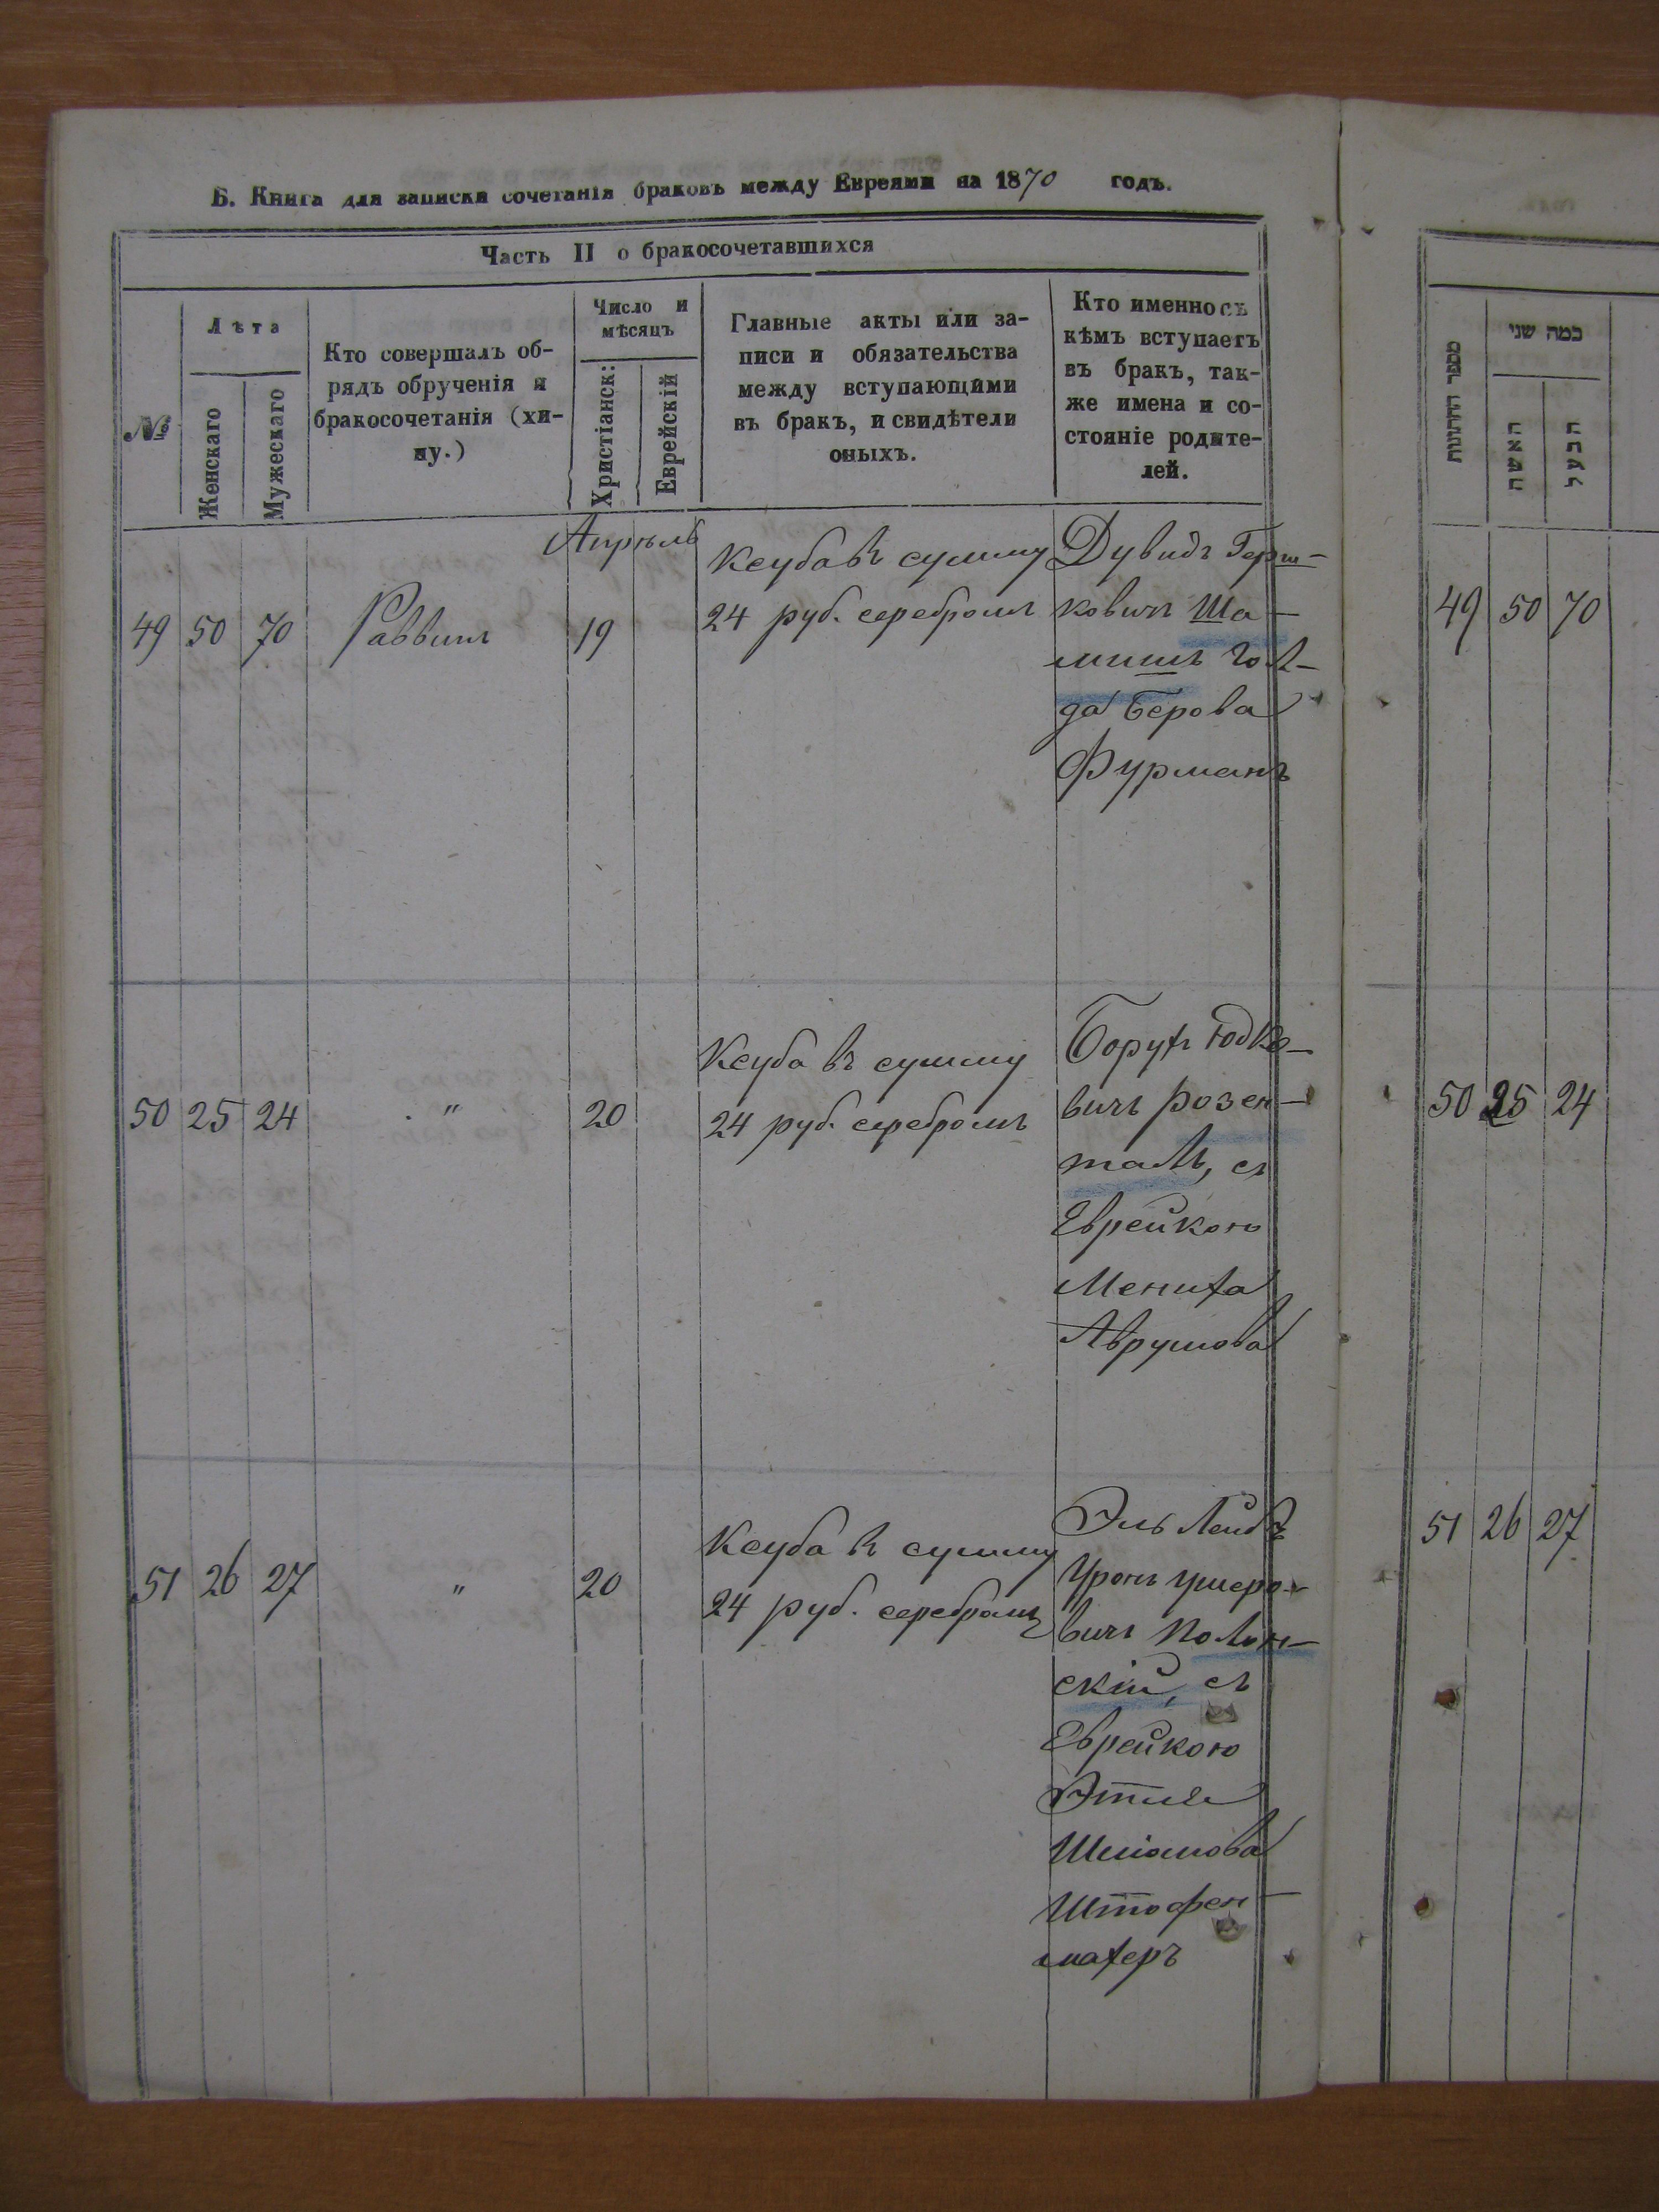 Б. Книга для записки сочетанія браковъ между Евреями на 1870 годъ.
Часть II о бракосочетавшихся
№
Лѣта
Женскаго
Мужескаго
Кто совершалъ об-
рядъ обрученія и
бракосочетанія (хи-
пу.)
Число и
мѣсяцъ
Христіанск:
Еврейскій
Главные акты или за-
писи и обязательства
между вступающими
въ бракъ, и свидѣтели
оныхъ.
Кто именно съ
кѣмъ вступаетъ
въ бракъ, так-
же имена и со-
стояніе родите-
лей.
Апрѣль
49 50 70 Раввинъ 19
Ксуба въ сумму
24 руб. серебромъ
Дувидъ Герш-
ковичъ Ша-
мишъ Гол-
да Берова
Фурманъ
50 25 24 " 20
Ксуба въ сумму
24 руб. серебромъ
Борухъ Юдко-
вичъ Розен-
таль, съ
Еврейкою
Мениха
Аврумова
51 26 27 " 20
Ксуба въ сумму
24 руб. серебромъ
Эль Лейбъ
Уронъ Ушеро-
вичъ Полон-
скій, съ
Еврейкою
Этиле
Шліомова
Штофен-
махеръ
מספר החתונות
כמה שני
האשה
הבעל
49 50 70
50 25 24
51 26 27